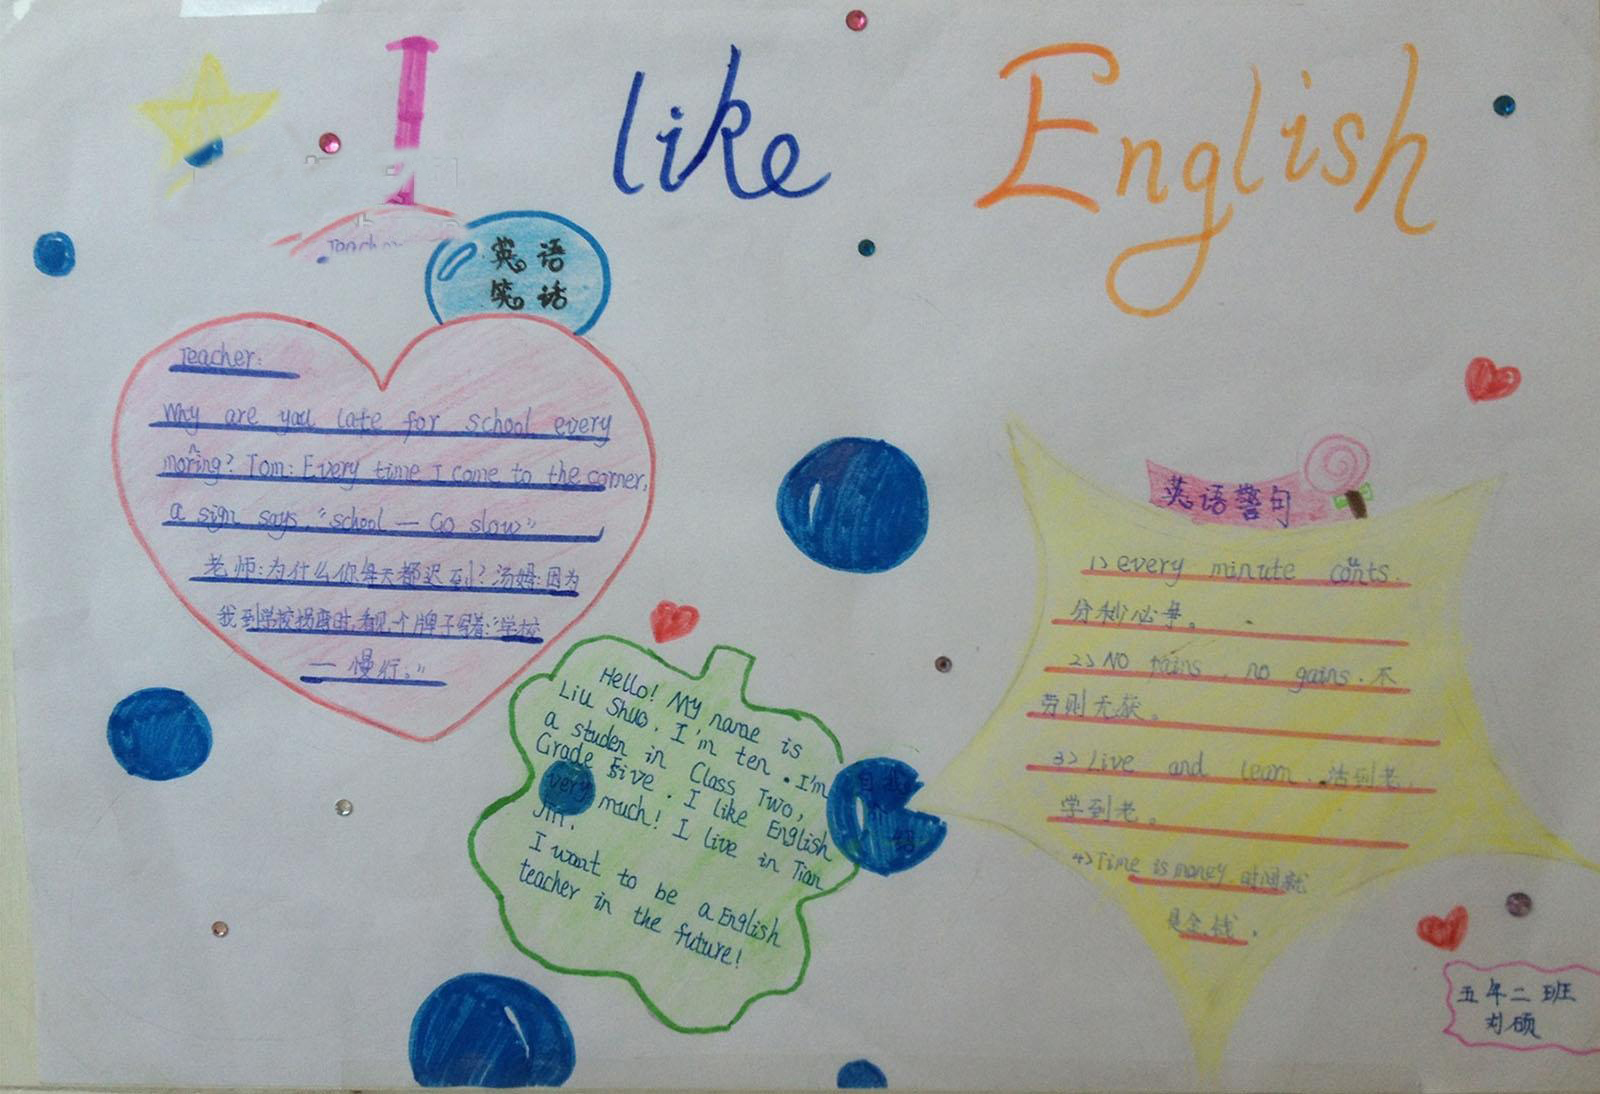 I like English
英语
笑话
Teacher:
Why are you late for school every
moring? Tom: Every time I come to the corner,
a sign says, "school — Go slow"
老师:为什么你每天都迟到?汤姆:因为
我到学校拐弯时,看见个牌子写着:"学校
— 慢行。"
Hello! My name is
Liu Shuo. I'm ten. I'm
a studen in Class Two,
Grade Five. I like English
very much! I live in Tian
Jin.
I want to be a English
teacher in the future!
自我
介
绍
英语警句
1> every minute conts.
分秒必争。
2> NO pains, no gains. 不
劳则无获。
3> Live and learn. 活到老,
学到老。
4> Time is money. 时间就
是金钱。
五年二班
刘硕